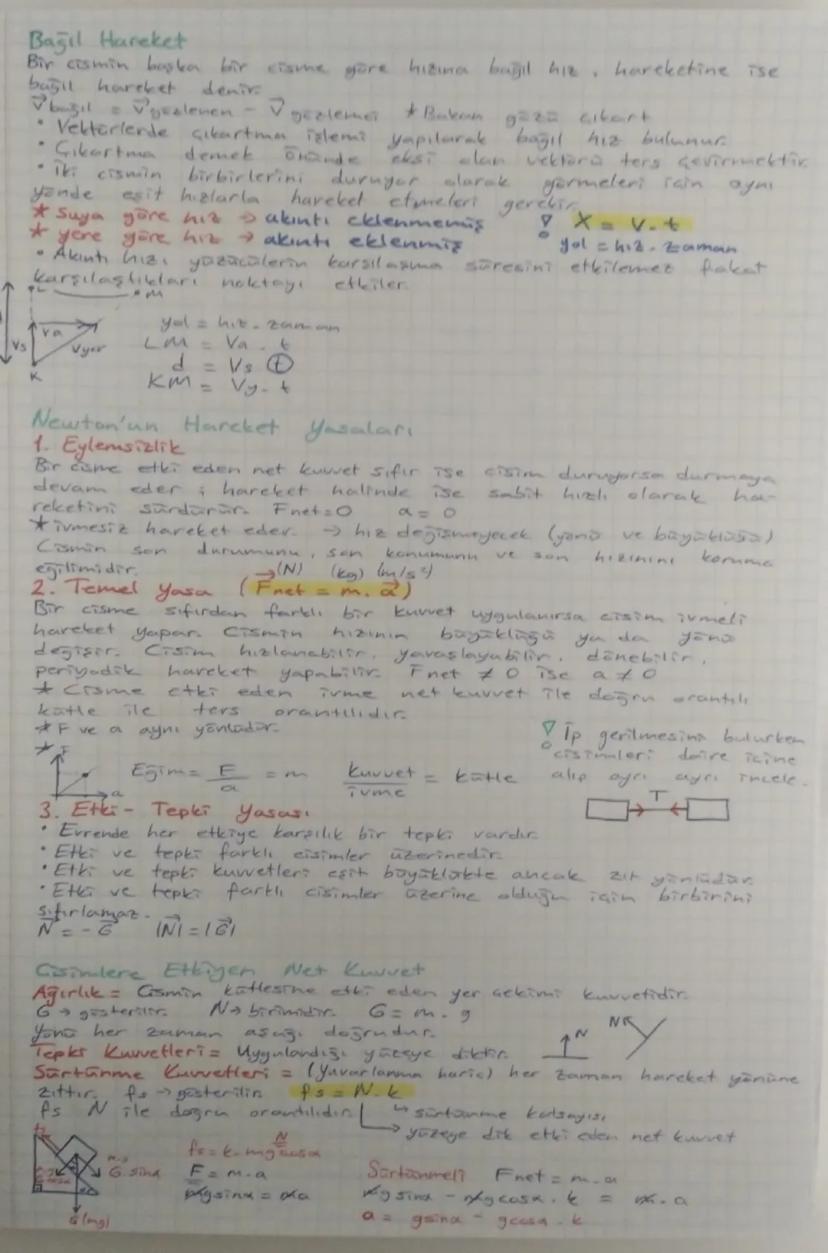 Bağıl Hareket
Bir cismin başka bir cisme göre hızına bağıl hız, hareketine ise
bağıl hareket denir.
V bağıl = V gözlenen - V gözlemci * Bakan gözü çıkart
• Vektörlerde çıkartma işlemi yapılarak bağıl hız bulunur.
• Çıkartma demek önünde eksi olan vektörü ters çevirmektir.
• İki cismin birbirlerini duruyor olarak görmeleri için aynı
yönde eşit hızlarla hareket etmeleri gerekir.
* Suya göre hız → akıntı eklenmemiş
X = V.t
* yere göre hız → akıntı eklenmiş
yol = hız.zaman
• Akıntı hızı yüzücülerin karşılaşma süresini etkilemez fakat
karşılaştıkları noktayı etkiler.
L M
Va
Vs Vyer
K
yol = hız.zaman
LM = Va.t
d = Vs t
KM = Vy.t
Newton'un Hareket Yasaları
1. Eylemsizlik
Bir cisme etki eden net kuvvet sıfır ise cisim duruyorsa durmaya
devam eder; hareket halinde ise sabit hızlı olarak ha-
reketini sürdürür. Fnet=0 a=0
* ivmesiz hareket eder. → hız değişmeyecek (yönü ve büyüklüğü)
Cismin son durumunu, son konumunu ve son hızınını koruma
eğilimidir.
(N) (kg) (m/s²)
2. Temel Yasa (Fnet = m.a)
Bir cisme sıfırdan farklı bir kuvvet uygulanırsa cisim ivmeli
hareket yapar. Cismin hızının büyüklüğü ya da yönü
değişir. Cisim hızlanabilir, yavaşlayabilir, dönebilir,
periyodik hareket yapabilir. Fnet ≠ 0 ise a ≠ 0
* Cisme etki eden ivme net kuvvet ile doğru orantılı
kütle ile ters orantılıdır.
* F ve a aynı yönlüdür.
* F
a
Eğim = F/a = m kuvvet/ivme = kütle
İp gerilmesini bulurken
cisimleri daire içine
alıp ayrı ayrı incele.
T
3. Etki - Tepki Yasası
• Evrende her etkiye karşılık bir tepki vardır.
• Etki ve tepki farklı cisimler üzerinedir.
• Etki ve tepki kuvvetleri eşit büyüklükte ancak zıt yönlüdür.
• Etki ve tepki farklı cisimler üzerine olduğu için birbirini
sıfırlamaz.
N = -G |N| = |G|
Cisimlere Etkiyen Net Kuvvet
Ağırlık = Cismin kütlesine etki eden yer çekimi kuvvetidir.
G → gösterilir. N → birimidir. G = m.g
Yönü her zaman aşağı doğrudur.
N N
Tepki Kuvvetleri = Uygulandığı yüzeye diktir.
Sürtünme Kuvvetleri = (Yuvarlanma hariç) her zaman hareket yönüne
zıttır. fs → gösterilir. fs = N.k
fs N ile doğru orantılıdır.
↳ sürtünme katsayısı
→ yüzeye dik etki eden net kuvvet
G.sinα
G(mg)
N
fs = k.mgcosα
F = m.a
mgsinα = ma
Sürtünmeli Fnet = m.a
mgsinα - mgcosα.k = m.a
a = gsinα - gcosα.k